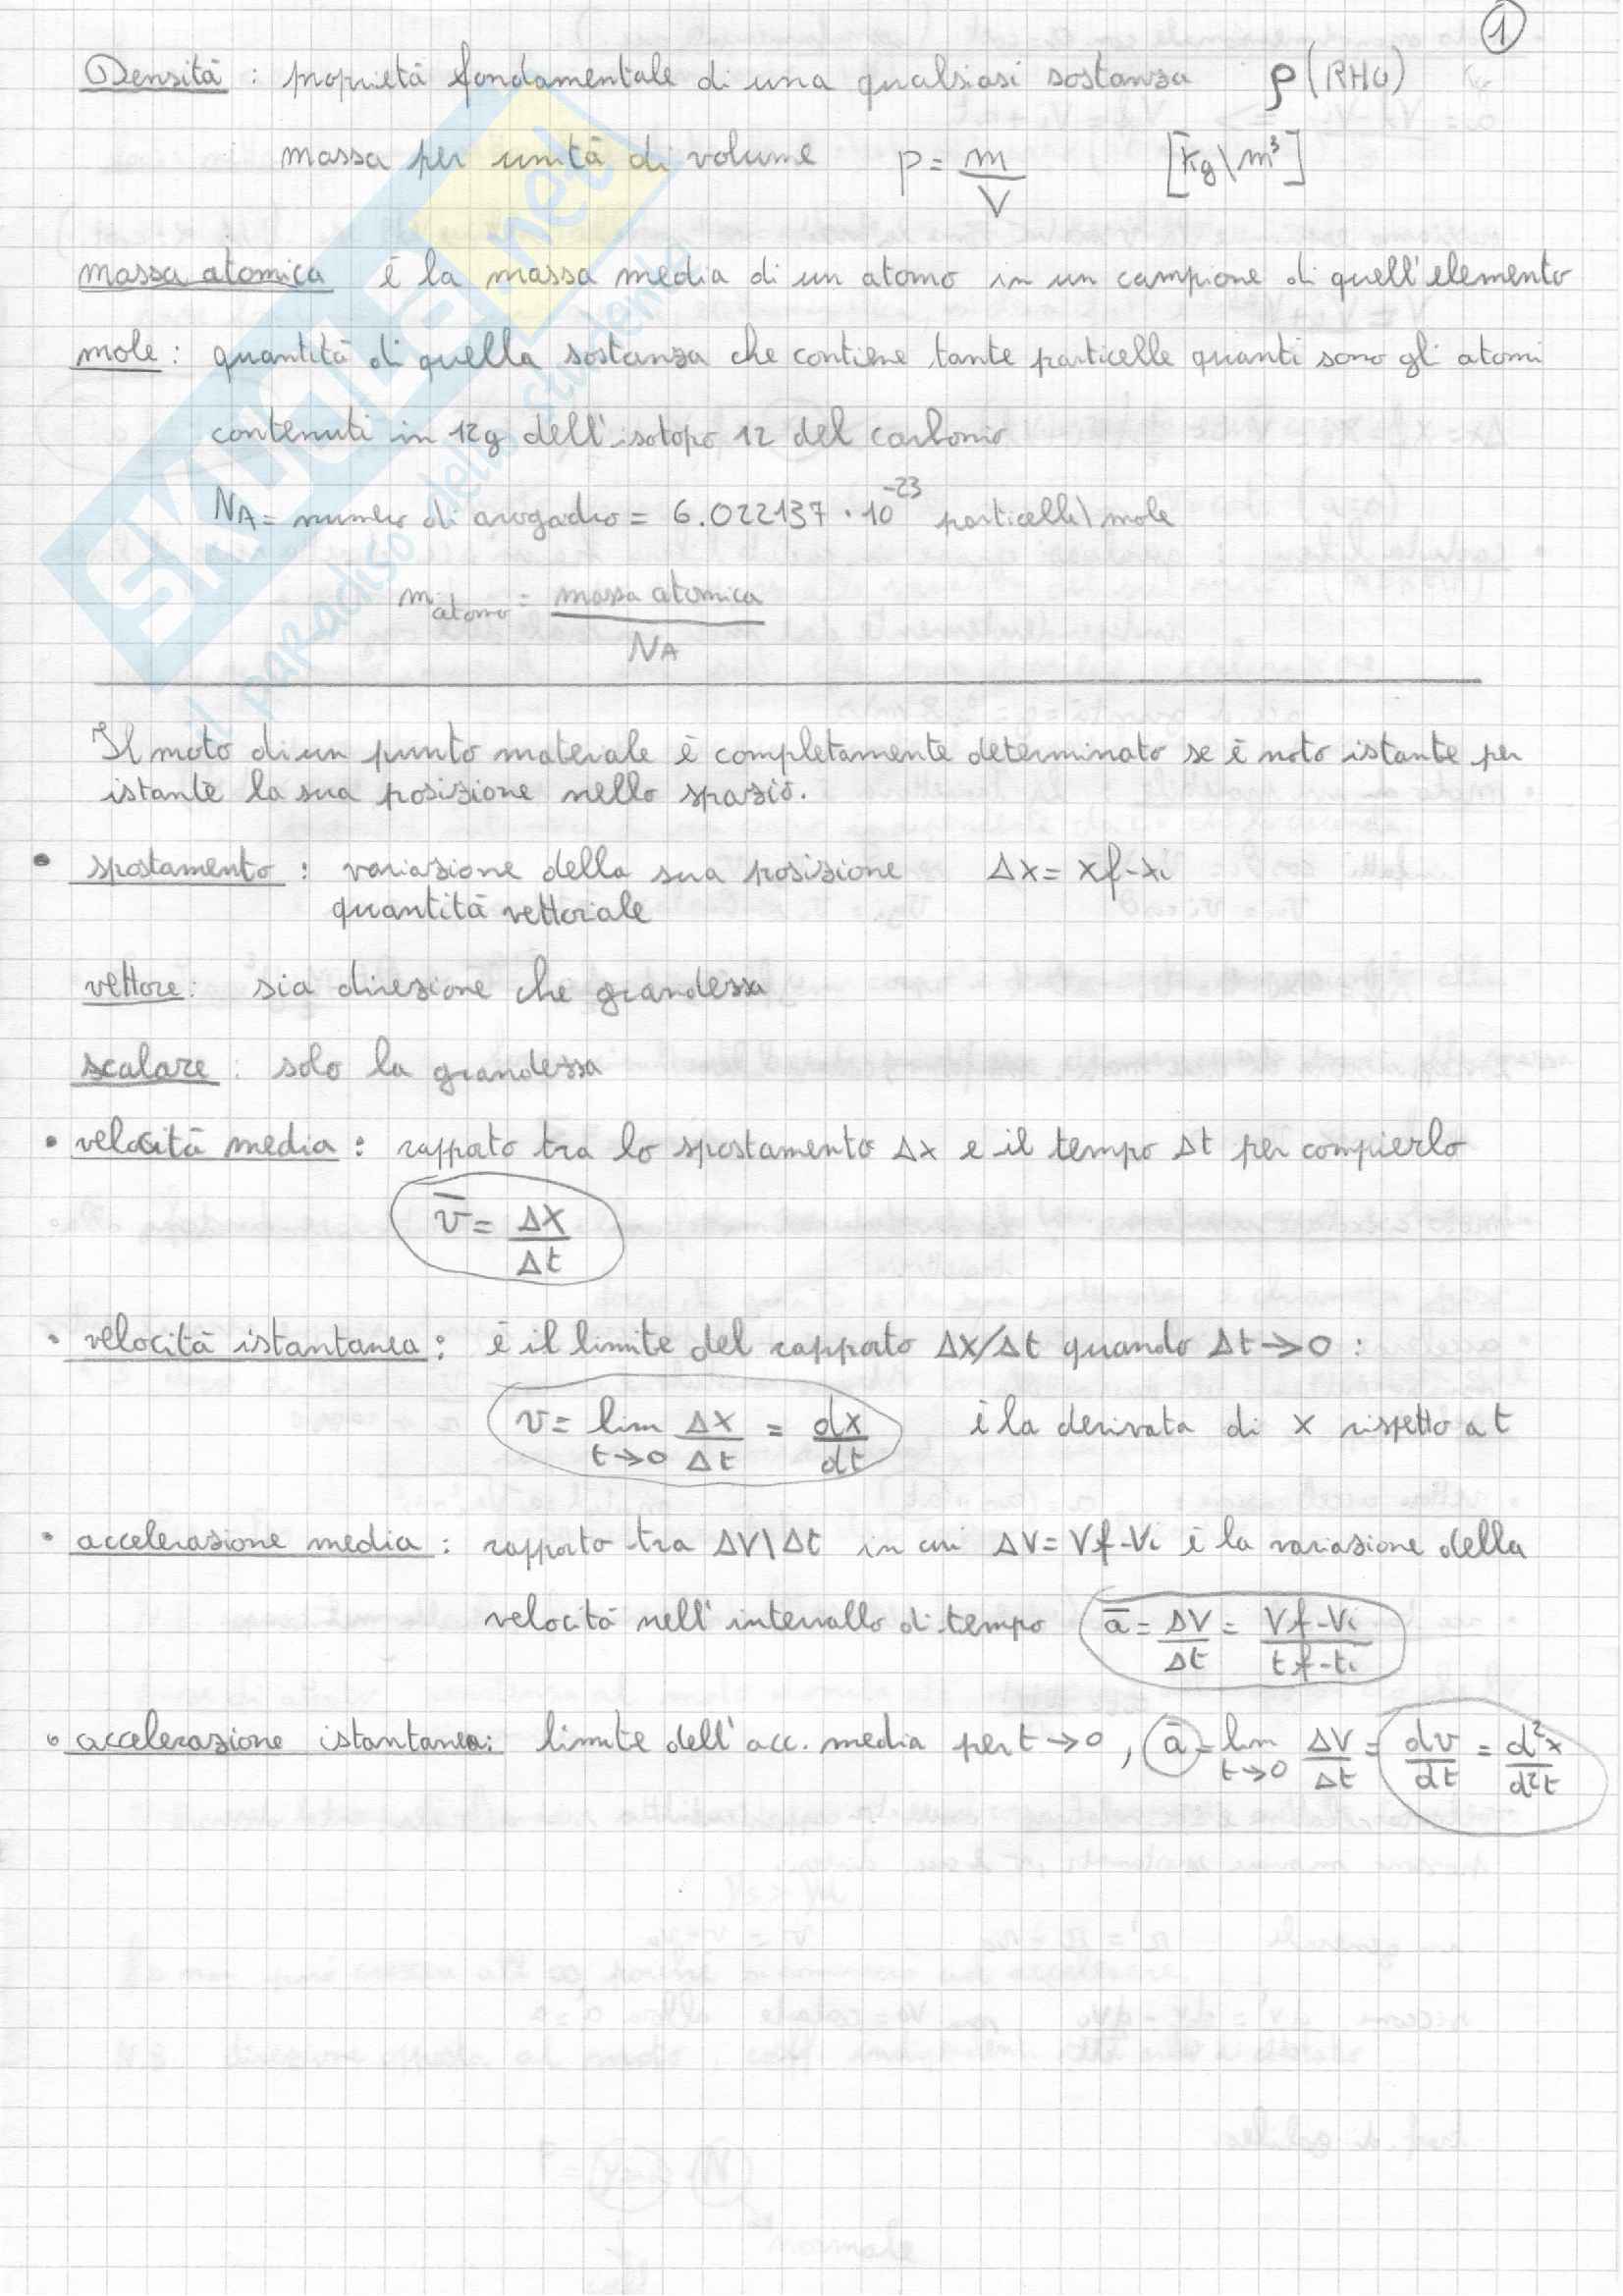 1
Densità : proprietà fondamentale di una qualsiasi sostanza ρ (RHO)
massa per unità di volume ρ = m/V [kg\m³]
massa atomica è la massa media di un atomo in un campione di quell'elemento
mole : quantità di quella sostanza che contiene tante particelle quanti sono gli atomi
contenuti in 12g dell'isotopo 12 del carbonio
NA = numero di avogadro = 6.022137 · 10⁻²³ particelle\mole
m atomo = massa atomica / NA
Il moto di un punto materiale è completamente determinato se è noto istante per
istante la sua posizione nello spazio.
• spostamento : variazione della sua posizione Δx = xf-xi
quantità vettoriale
vettore : sia direzione che grandezza
scalare : solo la grandezza
• velocità media : rapporto tra lo spostamento Δx e il tempo Δt per compierlo
v̅ = Δx/Δt
• velocità istantanea : è il limite del rapporto Δx/Δt quando Δt→0 :
v = lim t→0 Δx/Δt = dx/dt è la derivata di x rispetto a t
• accelerazione media : rapporto tra ΔV\Δt in cui ΔV = Vf-Vi è la variazione della
velocità nell'intervallo di tempo a̅ = ΔV/Δt = Vf-Vi/tf-ti
• accelerazione istantanea : limite dell'acc. media per t→0 , a̅ = lim t→0 ΔV/Δt = dv/dt = d²x/d²t
SKUOLA.net
il paradiso dello studente